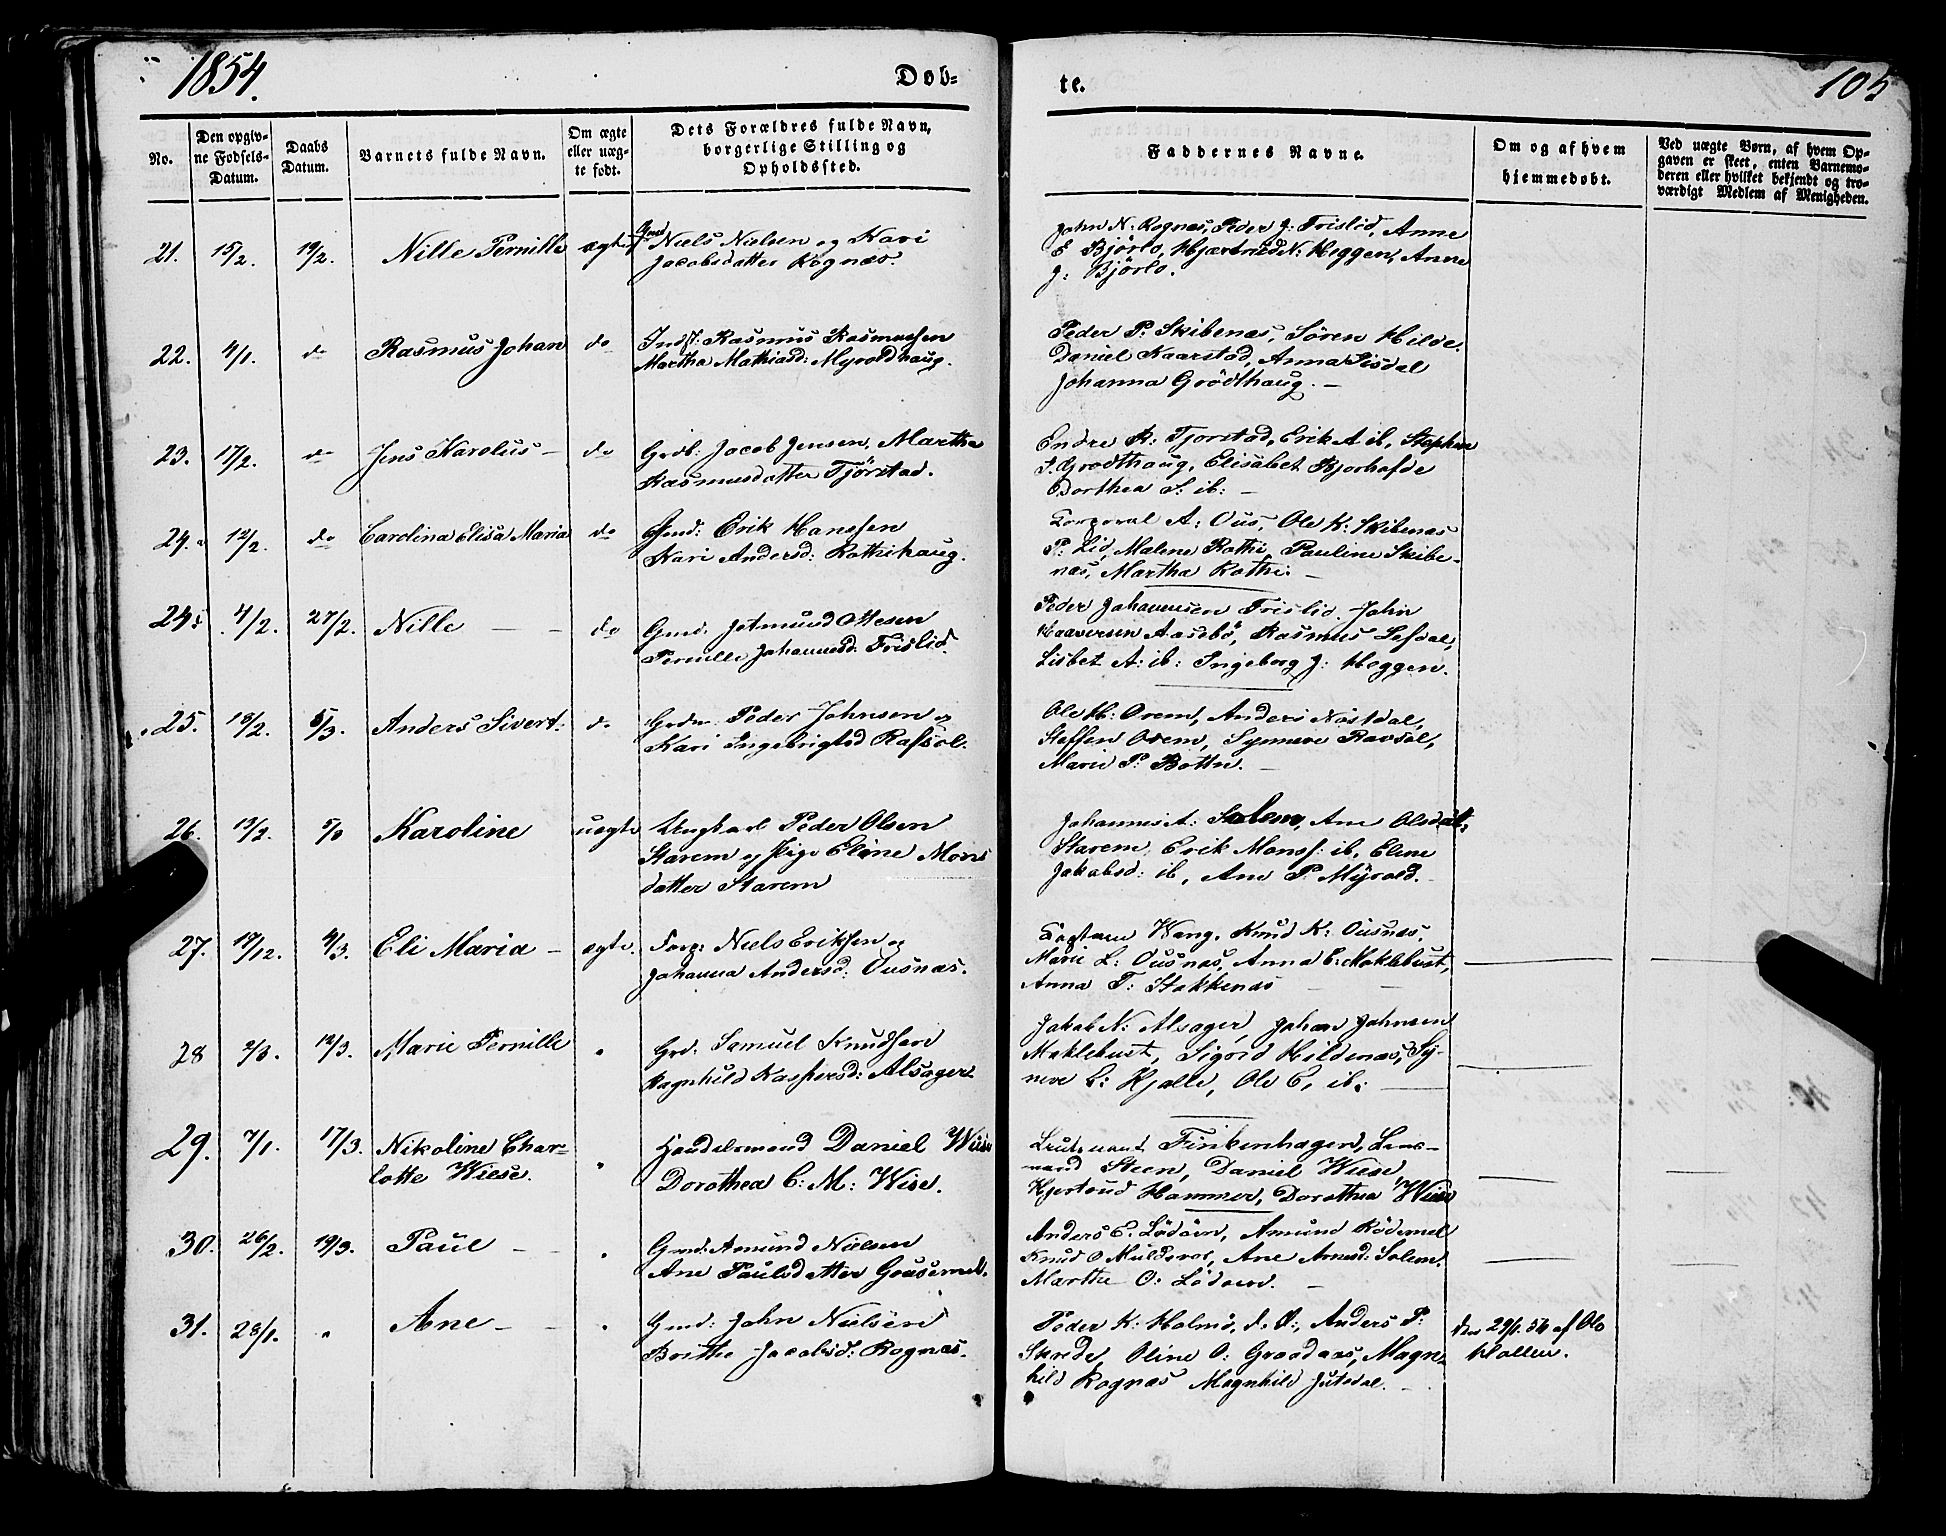 1854.
Døb-
te.
105
No.
Den opgiv-
ne Fødsels-
Datum.
Daabs
Datum.
Barnets fulde Navn.
Om ægte
eller uæg-
te født.
Dets Forældres fulde Navn,
borgerlige Stilling og
Opholdssted.
Faddernes Navne.
Om og af hvem
hjemmedøbt.
Ved uægte Børn, af hvem Op-
gaven er skeet, enten Barnemo-
deren eller hvilket bekjendt og tro-
værdigt Medlem af Menigheden.
21. 15/2. 19/2. Nille Pernille ægte Gmd Niels Nielsen og Kari
Jacobsdatter Rognæs.
John N: Rognæs, Peder J: Frislid, Anne
E Bjørlo, N: Heggen, Anne
J: Bjørlo.
22. 4/1. do Rasmus Johan do Inds: Rasmus Rasmussen
Martha Mathiasd: Myrvoldhaug.
Peder P. Skibenæs, Søren Hilde.
Daniel Kaarstad, Anna Sisdal
Johanna Grödthaug. —
23. 17/2. do Jens Karolus — do Grdb: Jacob Jensen, Martha
Rasmusdatter Tjörstad.
Endre R: Tjorstad, Erik A. ib, Stephan
S. Grodthaug, Elisabet
Dorthea S: ib: —
24. 12/2. do Carolina Elisa Maria do Gmd: Erik Hanssen
Kari Andersd: Rothihaug.
Corporal A: Ous, Ole K: Skibenæs
P: Lid, Malene Rothi, Pauline Skibe-
næs, Martha Rothi. —
24 4/2. 27/2. Nille — — do Gmd: Ottesen
Pernille Johannesd: Frislid.
Peder Johannesen Frislid. John
Aasebö, Rasmus
Lisbet A: ib: Ingeborg J: Heggen.
25. 18/2. 5/3. Anders Sivert. do Grdm: Peder Johnsen og
Kari Ingebrigtsd
Ole H: Orem, Anders Nostdal,
Steffen Orem, Synneve
Marie P: Bottn. —
26. 13/2. Karoline uægte Ungkarl Peder Olsen
Starem og Pige Eline Mons
datter Starem
Johannes A: Solem, Ane Olsdat:
Starem, Erik Monss: ib, Elene
Jakobsd: ib, Ane P. Myrold.
27. 17/12. 4/3. Eli Maria — ægte. Niels Eriksen og
Johanna Andersd: Ousnæs.
Wang, Knud K: Ousnæs,
Marie L: Ousnæs, Anna E: Moklebust,
Anna T: Stokkenæs — —
28 2/3. 12/3. Marie Pernille " Grd: Samuel Knudsen
Ragnhild Kaspersd: Alsager
Jakob N: Alsager, Johan Johnsen
Moklebust, Sigrid Hildenæs, Sy-
neve L: Hjelle, Ole E, ib: —
29. 7/1. 17/3. Nikoline Char-
lotte Wiese. " Handelsmand Daniel Wiese
Dorothea C: M: Wise.
Leutenant Finkenhagen, Lens-
mand Steen, Daniel Wiese
Hjertrud Hammer, Dorothea Wiese
30. 26/2. 19/3. Paul — — " Gmd: Amund Nielsen
Ane Paulsdatter Gousemel.
Anders E. Lödöin, Amund Rödemel
Knud O Muldsvor, Ane Arnesd: Solem.
Marthe O: —
31. 28/1. " Ane — — " Gmd: John Nielsen
Brithe Jacobsd: Rognæs.
Peder K: Holmö, d. Ö:, Anders P:
Skrede, Oline O: Graadaas, Magn-
hild Rognæs Magnhild Jutsdal. —
den 29/1. 54 af Ole
Hollen.